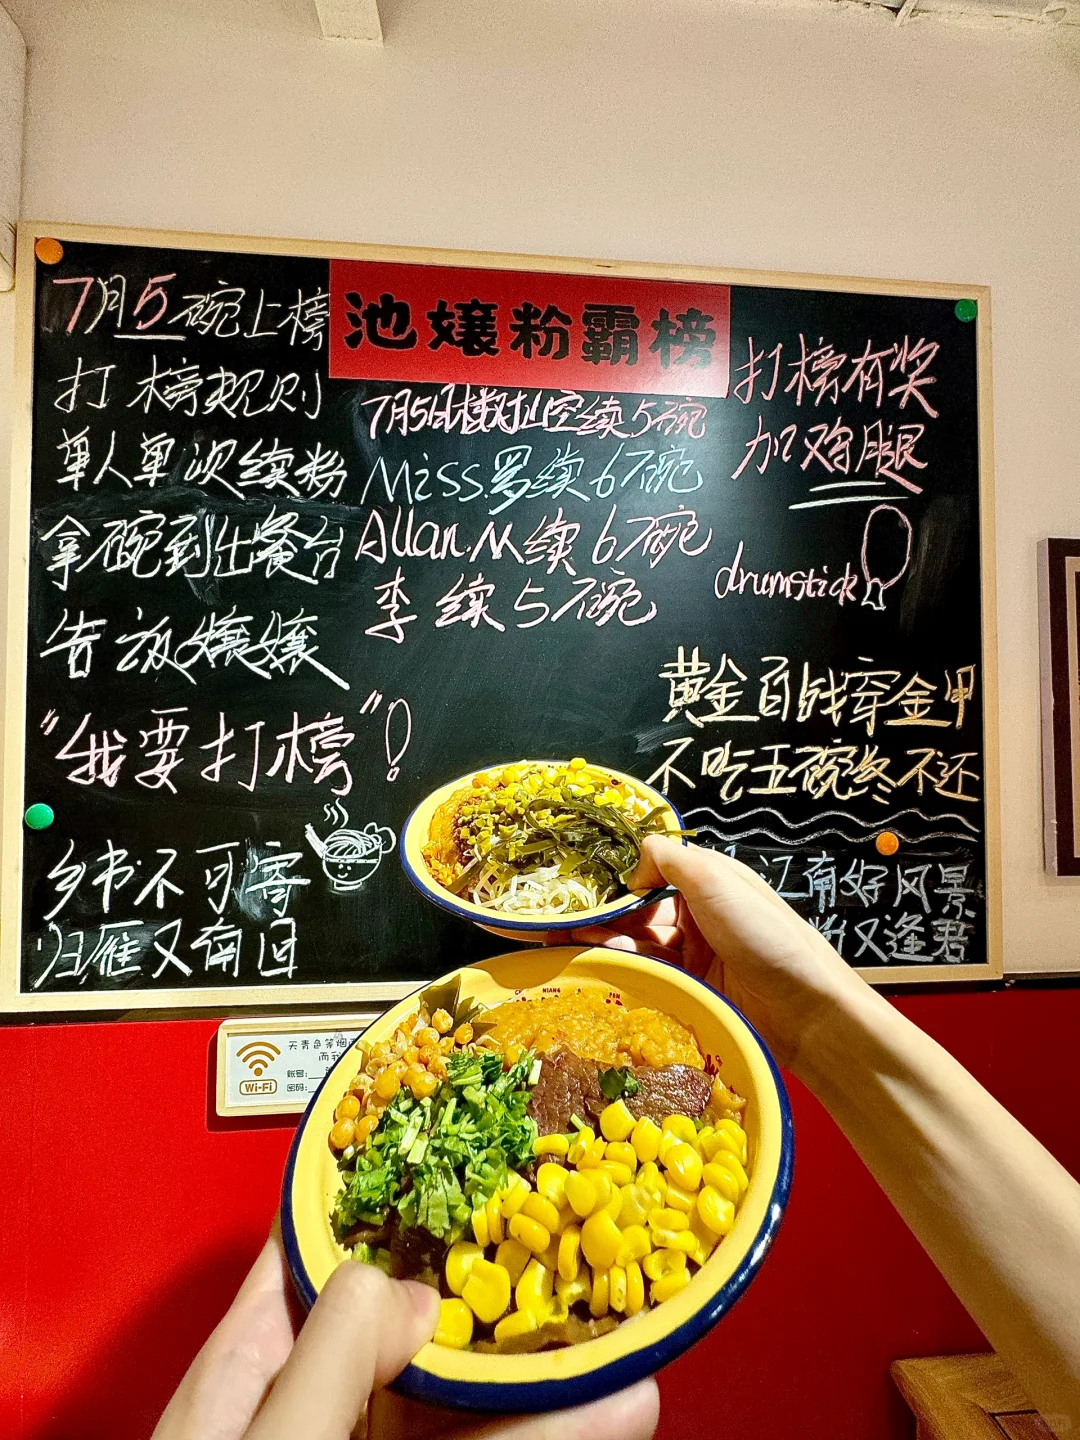 池孃粉霸榜
7月5碗上榜
打榜规则
单人单次续粉
拿碗到出餐台
告诉孃孃
"我要打榜"!
乡书不可寄
归雁又南回
Miss.罗续6碗
Allan.从续6碗
李续5碗
打榜有奖
加鸡腿
drumstick
黄金百战穿金甲
不吃五碗终不还
江南好风景
粉又逢君
Wi-Fi
天青色等烟雨
而我
账号:
密码: